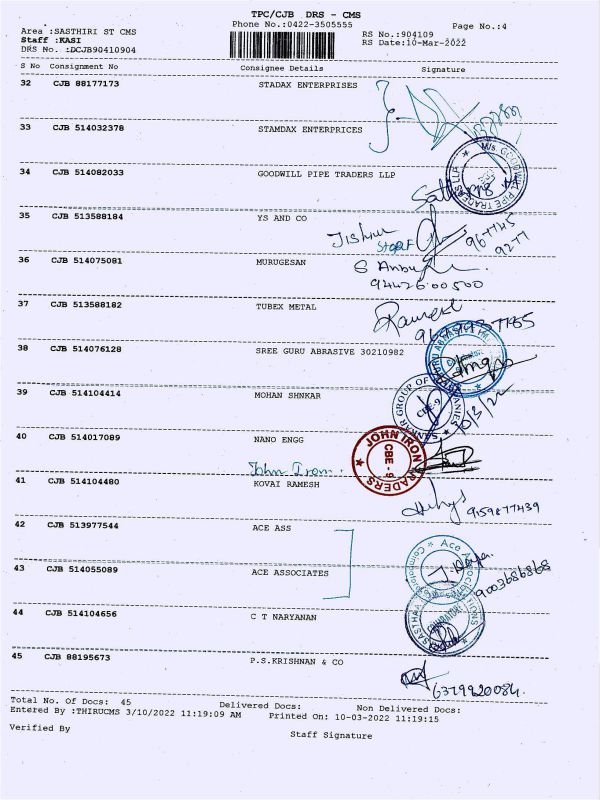 TPC/CJB DRS - CMS
Area :SASTHIRI ST CMS
Phone No.:0422-3505555
Page No.:4
Staff :KASI
RS No.:904109
DRS No. :DCJB90410904
RS Date:10-Mar-2022
S No Consignment No Consignee Details Signature
32 CJB 88177173 STADAX ENTERPRISES
33 CJB 514032378 STAMDAX ENTERPRICES
34 CJB 514082033 GOODWILL PIPE TRADERS LLP
M/s. GOODWILL PIPE TRADERS LLP
35 CJB 513588184 YS AND CO
967745
9277
36 CJB 514075081 MURUGESAN
94426 00500
37 CJB 513588182 TUBEX METAL
38 CJB 514076128 SREE GURU ABRASIVE 30210982
39 CJB 514104414 MOHAN SHNKAR
40 CJB 514017089 NANO ENGG
John Iron
JOHN IRON TRADERS
CBE - 9
41 CJB 514104480 KOVAI RAMESH
9159877439
42 CJB 513977544 ACE ASS
43 CJB 514055089 ACE ASSOCIATES
9003686868
44 CJB 514104656 C T NARYANAN
45 CJB 88195673 P.S.KRISHNAN & CO
6379920084
Total No. Of Docs: 45 Delivered Docs: Non Delivered Docs:
Entered By :THIRUCMS 3/10/2022 11:19:09 AM Printed On: 10-03-2022 11:19:15
Verified By Staff Signature